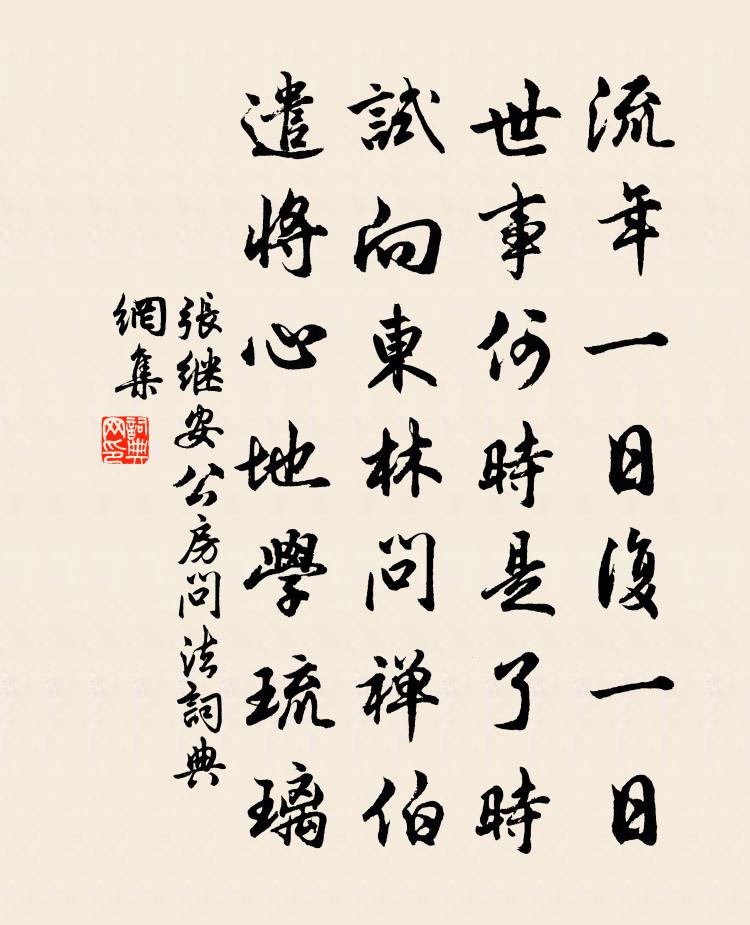 流年一日復一日
世事何時是了時
試向東林問禅伯
遣將心地學琉璃
張继安公房問法詞典
網集
詞典
网印